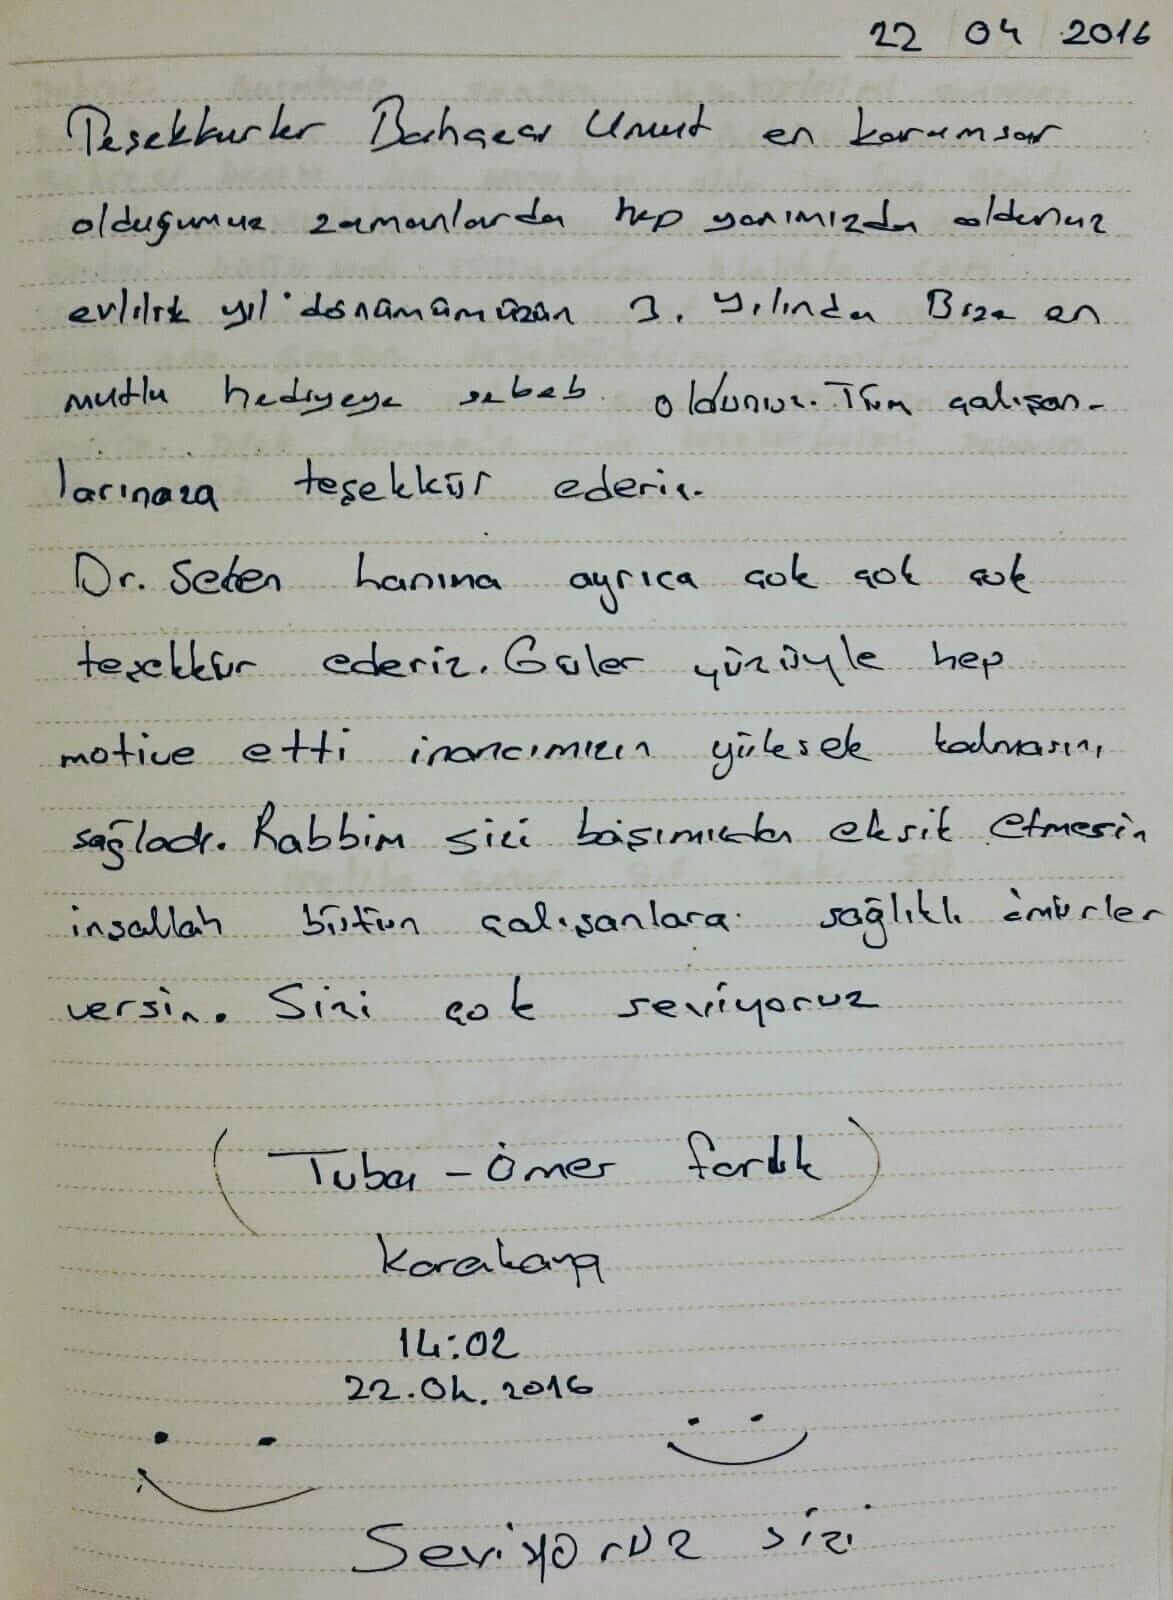 22 04 2016
Teşekkürler Bahçeci Umut en karamsar
olduğumuz zamanlarda hep yanımızda oldunuz
evlilik yıl dönümümüzün 3. yılında Bize en
mutlu hediyeye sebeb oldunuz. Tüm çalışan-
larınıza teşekkür ederiz.
Dr. Seten hanıma ayrıca çok çok çok
teşekkür ederiz. Güler yüzüyle hep
motive etti inancımızın yüksek kalmasını
sağladı. Rabbim sizi başımızdan eksik etmesin
inşallah bütün çalışanlara sağlıklı ömürler
versin. Sizi çok seviyoruz
(Tuba - Ömer faruk)
Karakaya
14:02
22.04.2016
Seviyoruz sizi